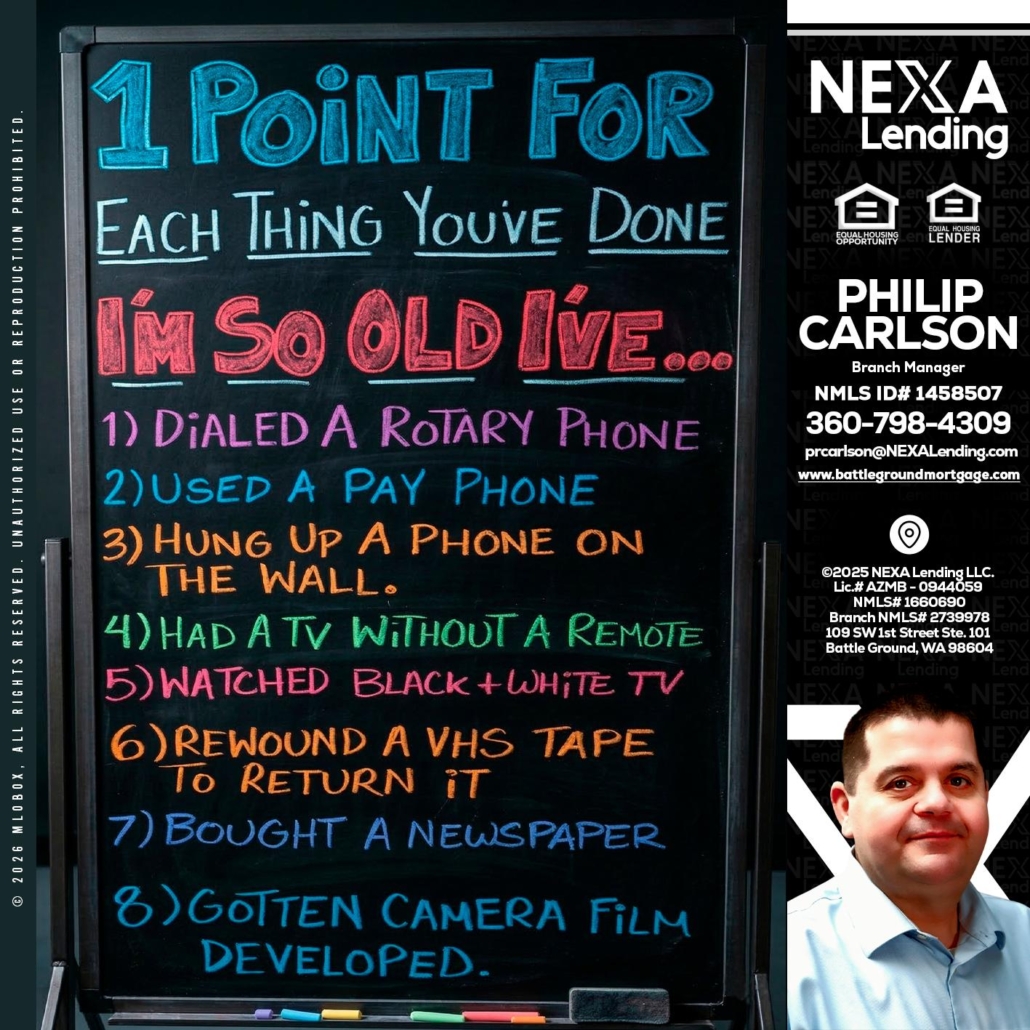 1 POINT FOR
EACH THING YOU'VE DONE
I'M SO OLD I'VE...
1) DIALED A ROTARY PHONE
2) USED A PAY PHONE
3) HUNG UP A PHONE ON
THE WALL.
4) HAD A TV WITHOUT A REMOTE
5) WATCHED BLACK + WHITE TV
6) REWOUND A VHS TAPE
TO RETURN IT
7) BOUGHT A NEWSPAPER
8) GOTTEN CAMERA FILM
DEVELOPED.
© 2026 MLOBOX, ALL RIGHTS RESERVED. UNAUTHORIZED USE OR REPRODUCTION PROHIBITED.
NEXA
Lending
EQUAL HOUSING
OPPORTUNITY
EQUAL HOUSING
LENDER
PHILIP
CARLSON
Branch Manager
NMLS ID# 1458507
360-798-4309
prcarlson@NEXALending.com
www.battlegroundmortgage.com
©2025 NEXA Lending LLC.
Lic.# AZMB - 0944059
NMLS# 1660690
Branch NMLS# 2739978
109 SW 1st Street Ste. 101
Battle Ground, WA 98604